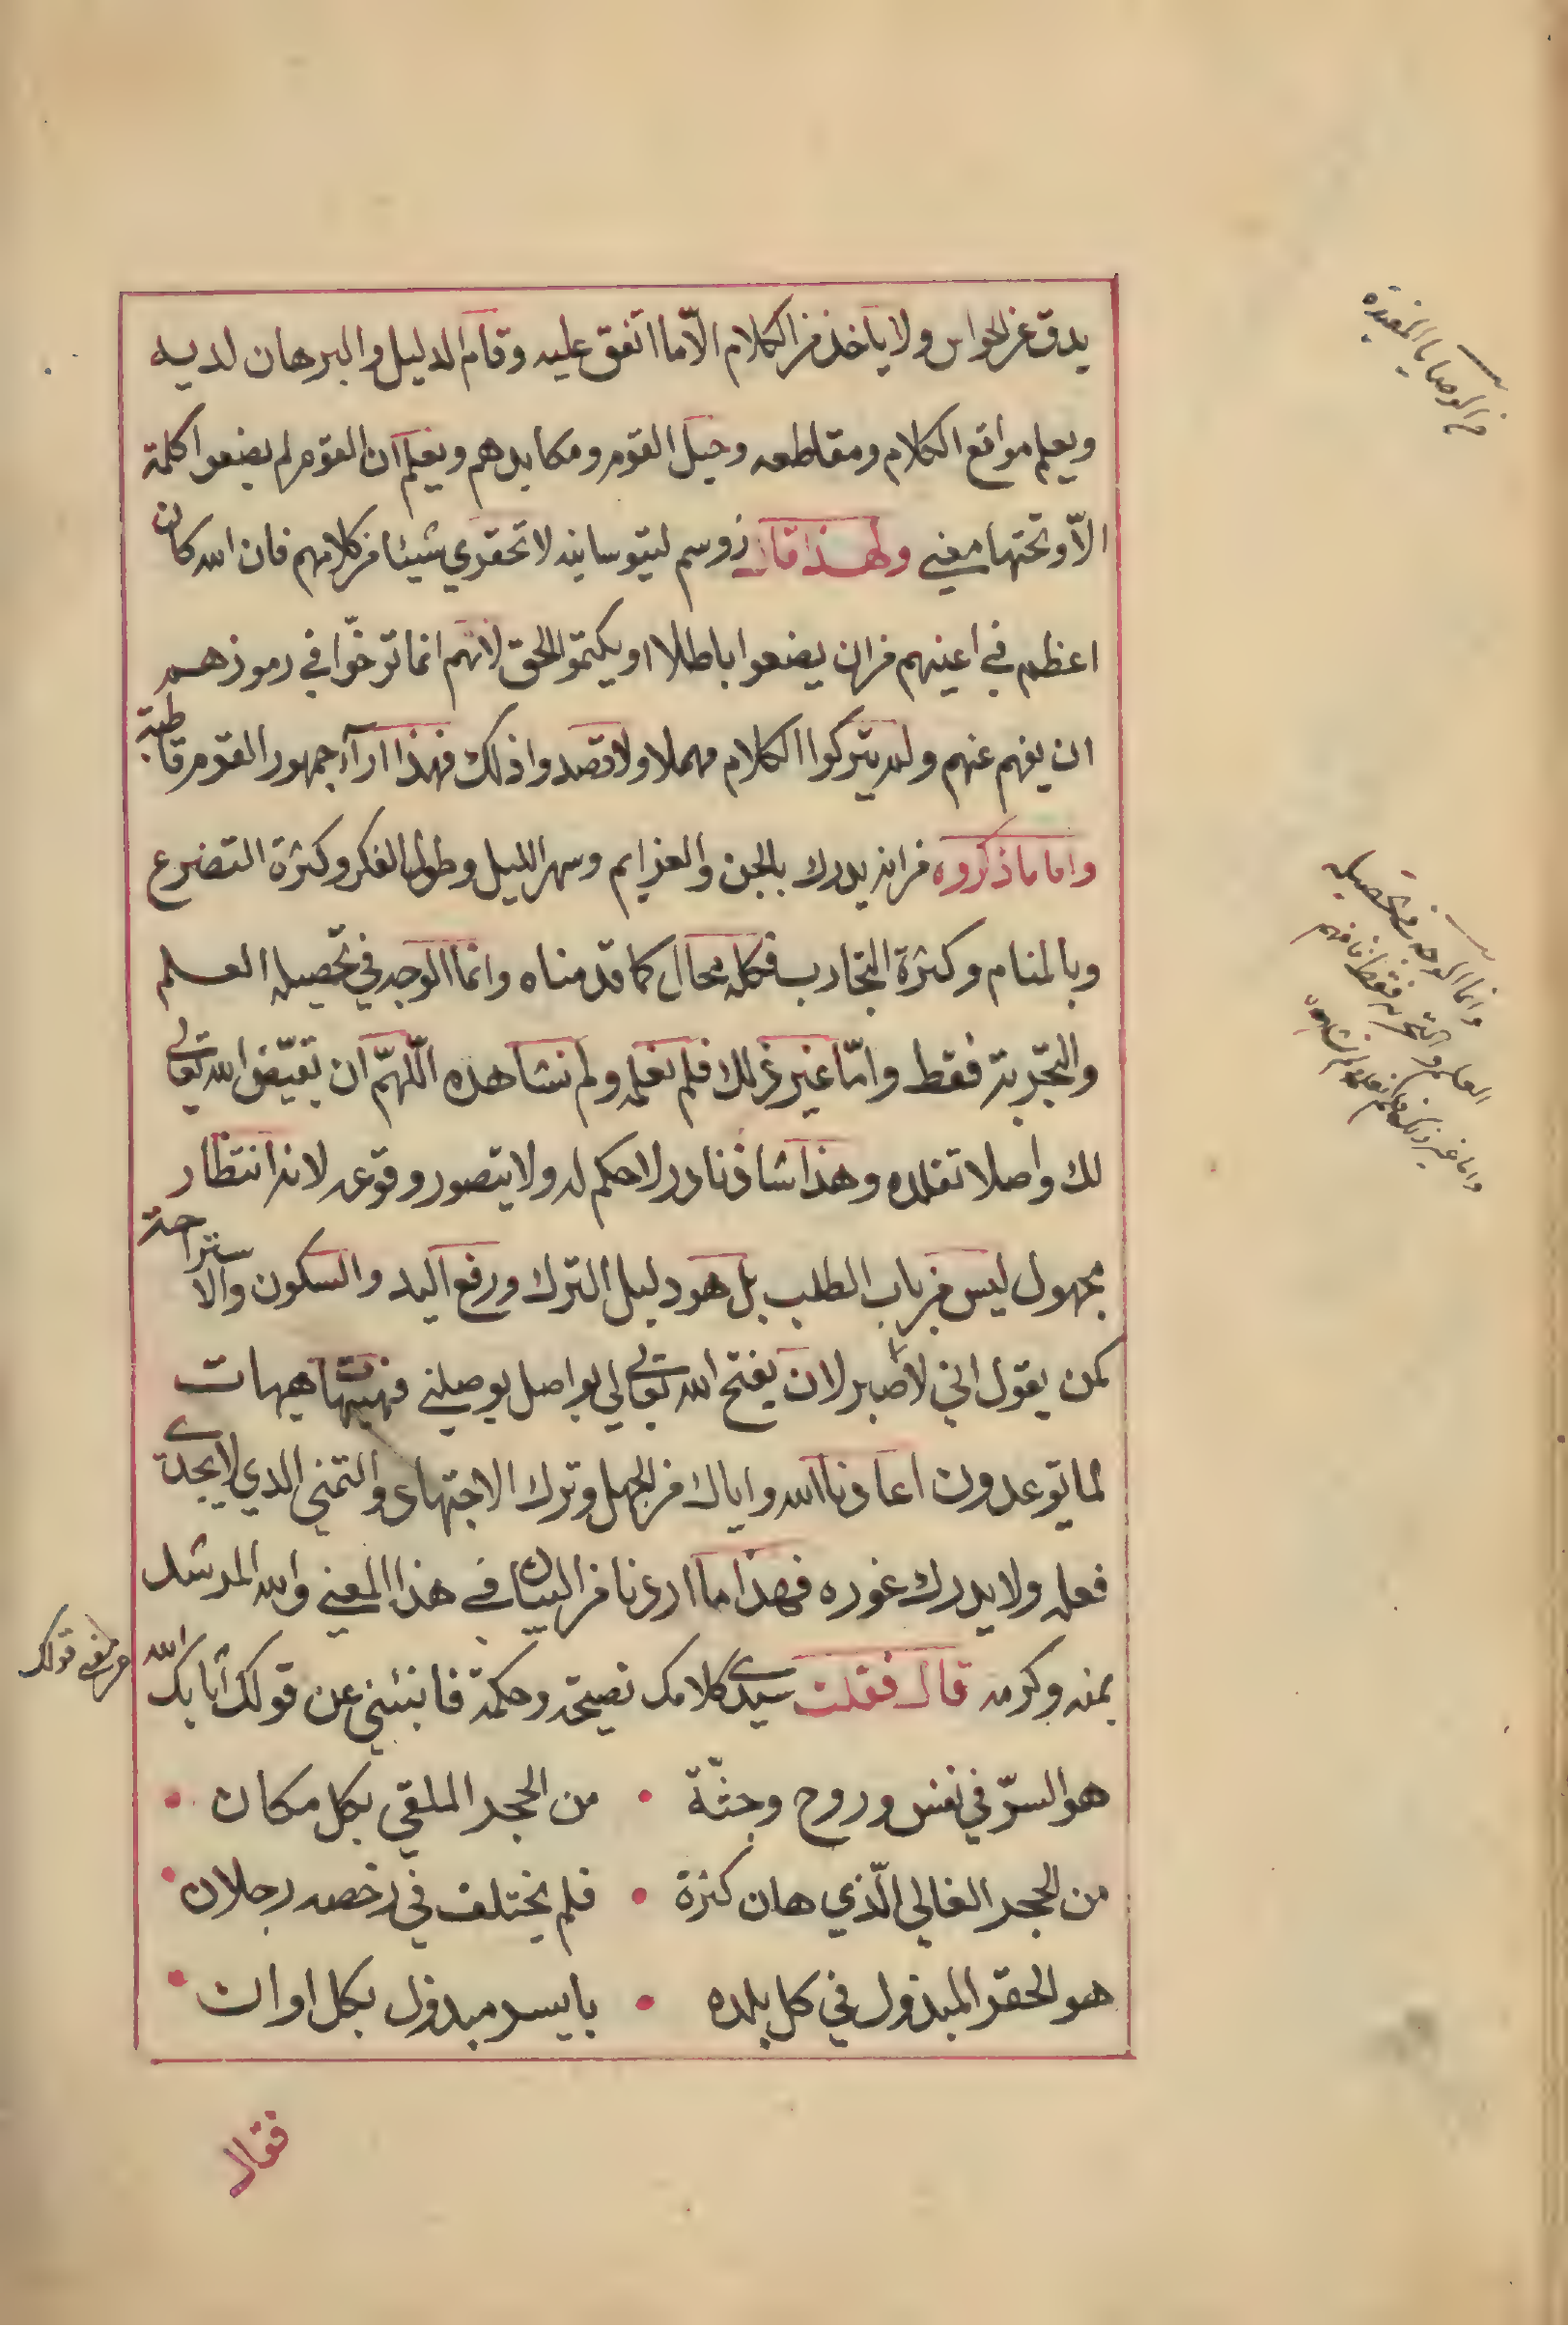 يدق عن الحواس ولا ياخذ من الكلام الّا ما اتفق عليه وقام الدليل والبرهان لديه
ويعلم مواقع الكلام ومقاطعه وحيل القوم ومكايدهم ويعلم ان القوم لم يضعوا كلمة
الّا وتحتها معني ولهذا قال زوسم ليتوسانيه لا تحقري شيئا من كلامهم فان الله كان
اعظم في اعينهم من ان يضعوا باطلا او يكتموا الحق لانهم انما توخّوا في رموزهم
ان يفهم عنهم ولم يتركوا الكلام مهملا ولا قصدوا ذلك فهذا ارآء جمهور القوم قاطبة
واما ما ذكروه من انه يدرك بالجن والعزايم وسهر الليل وطول الفكر وكثرة التضرع
وبالمنام وكثرة التجارب فكله محال كما قدمناه وانما الوجه في تحصيله العلم
والتجربة فقط وامّا غير ذلك فلم نعلمه ولم نشاهده اللّهمّ ان يقيّض الله تعالى
لك واصلا تقلده وهذا شاذ نادر لا حكم له ولا يتصور وقوعه لانه انتظار
مجهول ليس من باب الطلب بل هو دليل الترك ورفع اليد والسكون والاستراحة
كمن يقول اني لاصبر لان يفتح الله تعالى لي بواصل يوصلني فهيهات هيهات
لما توعدون اعاذنا الله واياك من الجهل وترك الاجتهاد والتمني الذي لا يجدى
فعله ولا يدرك غوره فهذا ما اردنا من البيان في هذا المعني والله المرشد
بمنه وكرمه قال فقلت سيدى كلامك نصيحة وحكمة فانبئني عن قولك اثابك الله
عن معنى قولك
هو السرّ في نفس وروح وجثّة • من الحجر الملقي بكل مكان •
من الحجر الغالي الّذي هان كنزة • فلم يختلف في رخصه رجلان •
هو الحقر المبذول في كل بلده • بايسر مبذول بكل اوان •
فقال
من الوصايا المفيدة
وانما الوجه في تحصيله
العلم والتجربة فقط فافهم
واما غير ذلك فلم نعلمه ولم نشاهده